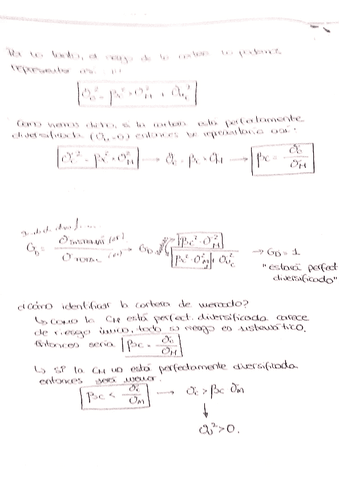 Por lo tanto, el riesgo de la cartera lo podemos
representar así:
σc² = βc² · σM² + σ
Como hemos dicho, si la cartera está perfectamente
diversificada entonces se representaría así:
σc² = βc² · σM² → σc = βc · σM → βc = σc / σM
→ GD = 1
"estará perfect.
diversificado"
¿Cómo identificar la cartera de mercado?
↳ Como la CM está perfect. diversificada carece
de riesgo único, todo su riesgo es sistemático.
Entonces sería βc = σc / σM
↳ Si la CM no está perfectamente diversificada
entonces será menor.
βc < σc / σM → σc > βc σM
↓
> 0.